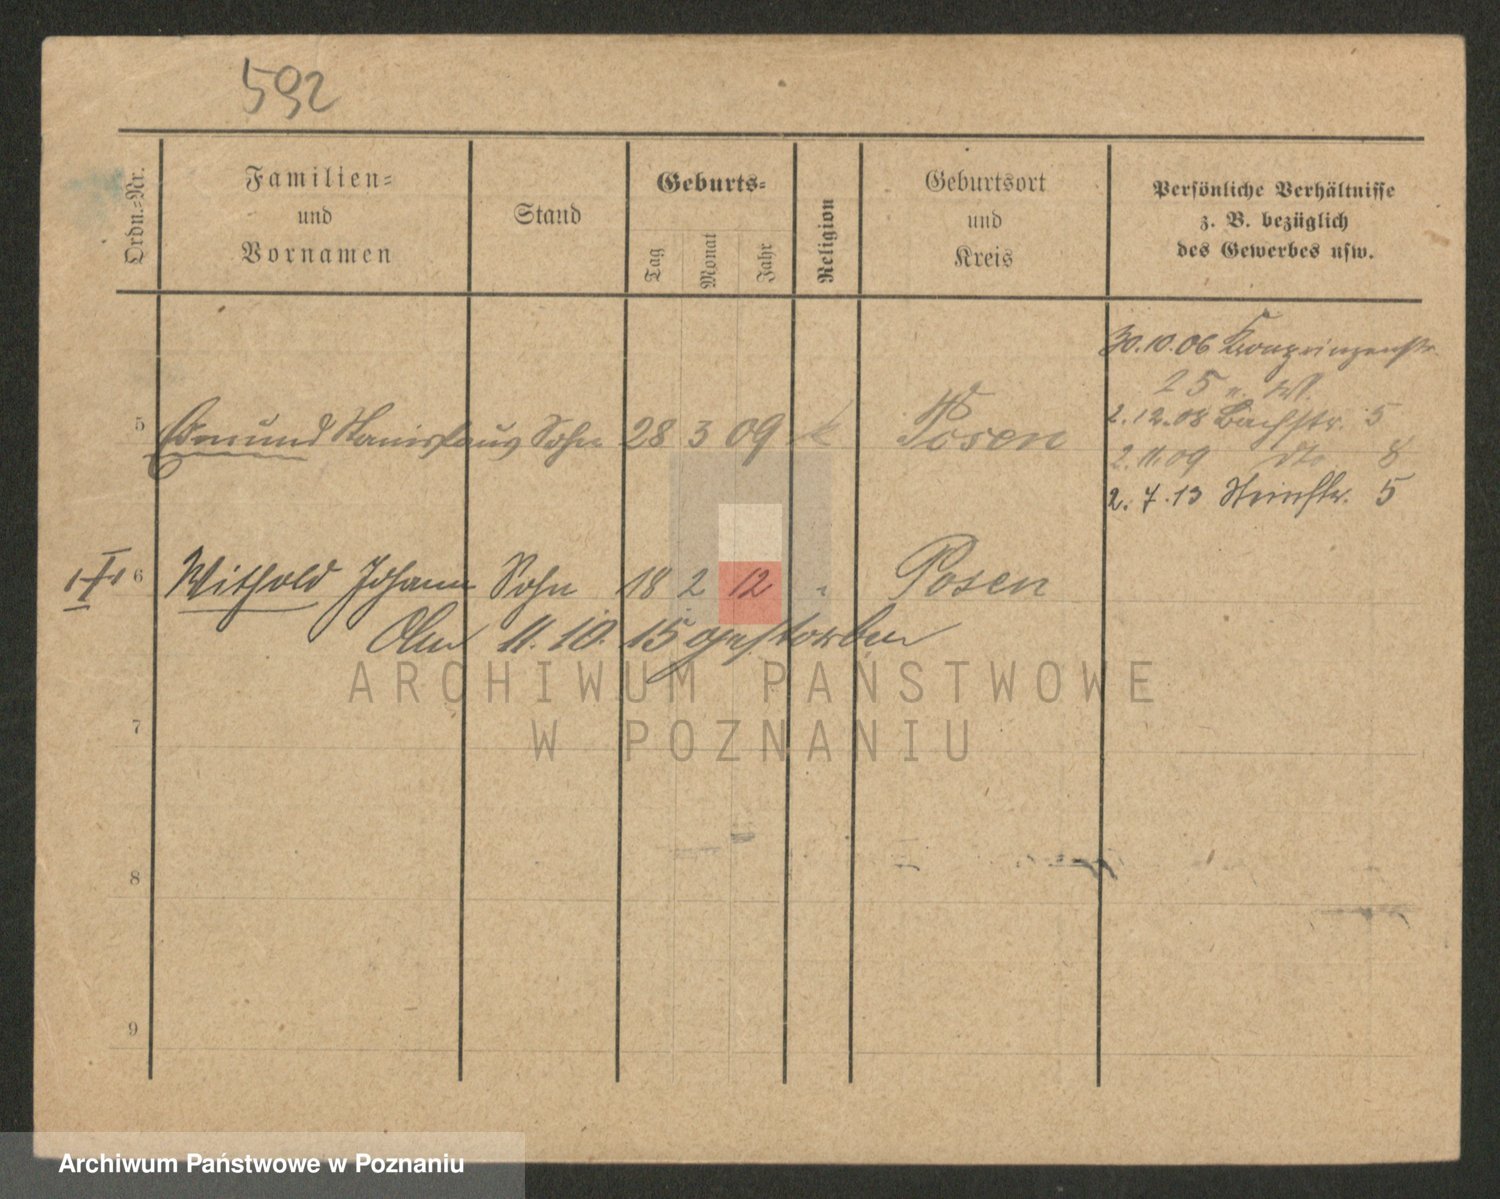 592
Ordn.-Nr.
Familien-
und
Vornamen
Stand
Geburts-
Tag
Monat
Jahr
Religion
Geburtsort
und
Kreis
Persönliche Verhältnisse
z. B. bezüglich
des Gewerbes usw.
30.10.06 Kronprinzenstr.
25
2.12.08 Bachstr. 5
5 Edmund Stanislaus Sohn 28 3 09 k Posen
2.11.09 dto 8
2.7.13 Steinstr. 5
6 Withold Johann Sohn 18 2 12 " Posen
Am 11.10.15 gestorben
7
8
9
ARCHIWUM PAŃSTWOWE
W POZNANIU
Archiwum Państwowe w Poznaniu